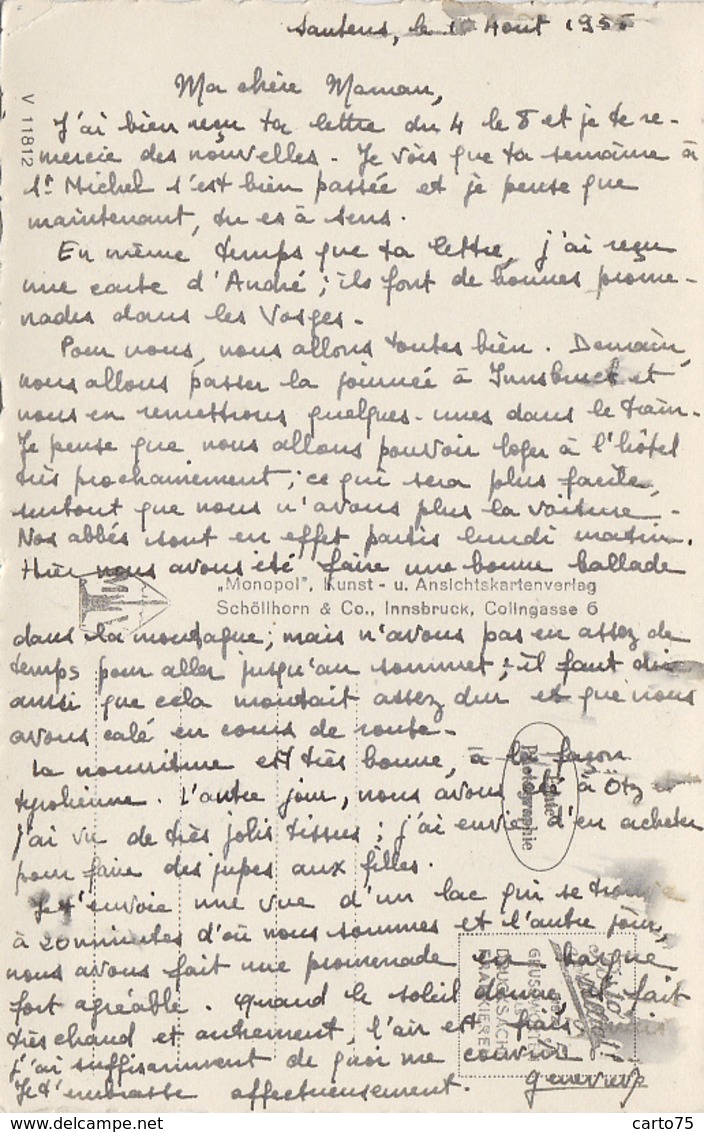 Sautens, le 10 Août 1955
Ma chère Maman,
J'ai bien reçu ta lettre du 4 le 8 et je te re-
mercie des nouvelles. Je vois que ta semaine à
St Michel s'est bien passée et je pense que
maintenant, tu es à sens.
En même temps que ta lettre, j'ai reçu
une carte d'André ; ils font de bonnes prome-
nades dans les Vosges.
Pour nous, nous allons toutes bien. Demain,
nous allons passer la journée à Innsbruck et
nous en remettrons quelques-unes dans le train.
Je pense que nous allons pouvoir loger à l'hôtel
très prochainement ; ce qui sera plus facile,
surtout que nous n'avons plus la voiture.
Nos abbés sont en effet partis lundi matin.
Hier nous avons été faire une bonne ballade
dans la montagne ; mais n'avons pas eu assez de
temps pour aller jusqu'au sommet ; il faut dire
aussi que cela montait assez dur et que nous
avons calé en cours de route.
La nourriture est très bonne, à la façon
tyrolienne. L'autre jour, nous avons été à Ötz et
j'ai vu de très jolis tissus ; j'ai envie d'en acheter
pour faire des jupes aux filles.
Je t'envoie une vue d'un lac qui se trouve
à 20 minutes d'où nous sommes et l'autre jour,
nous avons fait une promenade en barque
fort agréable. Quand le soleil donne, il fait
très chaud et autrement, l'air est frais mais
j'ai suffisamment de quoi me couvrir.
Je t'embrasse affectueusement.
Geneviève
V 11812
„Monopol", Kunst- u. Ansichtskartenverlag
Schöllhorn & Co., Innsbruck, Colingasse 6
Echte
Photographie
DRUCKSACHE
carto75